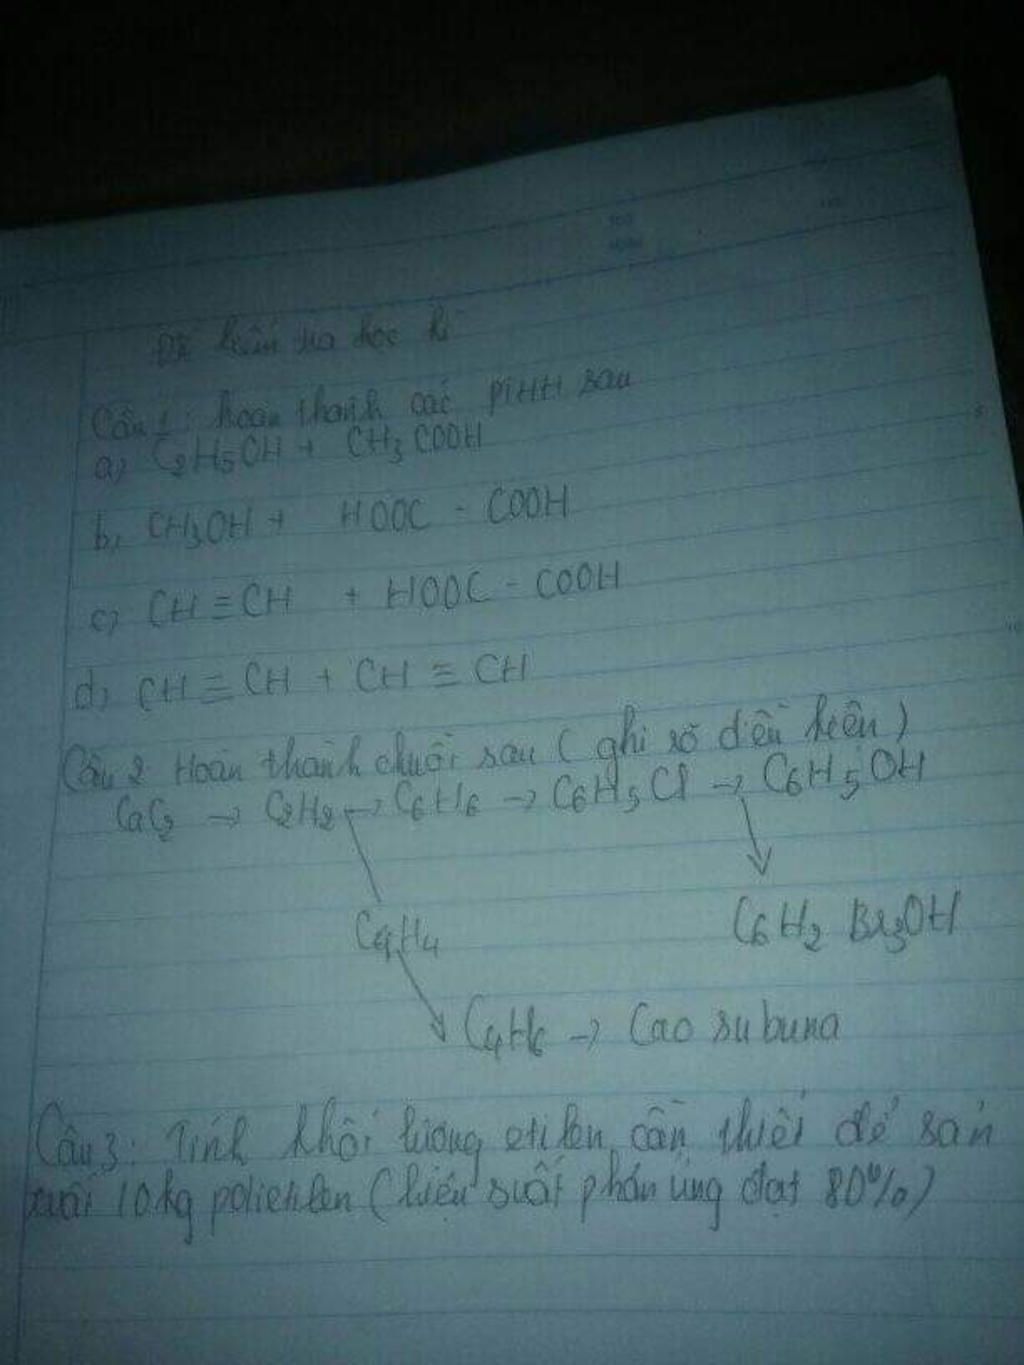 Đề kiểm tra học kì
Câu 1: hoàn thành các PTHH sau
a) C2H5OH + CH3COOH
b, CH3OH + HOOC - COOH
c) CH ≡ CH + HOOC - COOH
d, CH ≡ CH + CH ≡ CH
Câu 2 Hoàn thành chuỗi sau ( ghi rõ điều kiện )
CaC2 → C2H2 → C6H6 → C6H5Cl → C6H5OH
C4H4
C6H2Br3OH
C4H6 → Cao su buna
Câu 3: Tính khối lượng etilen cần thiết để sản
xuất 10kg polietilen (hiệu suất phản ứng đạt 80%)